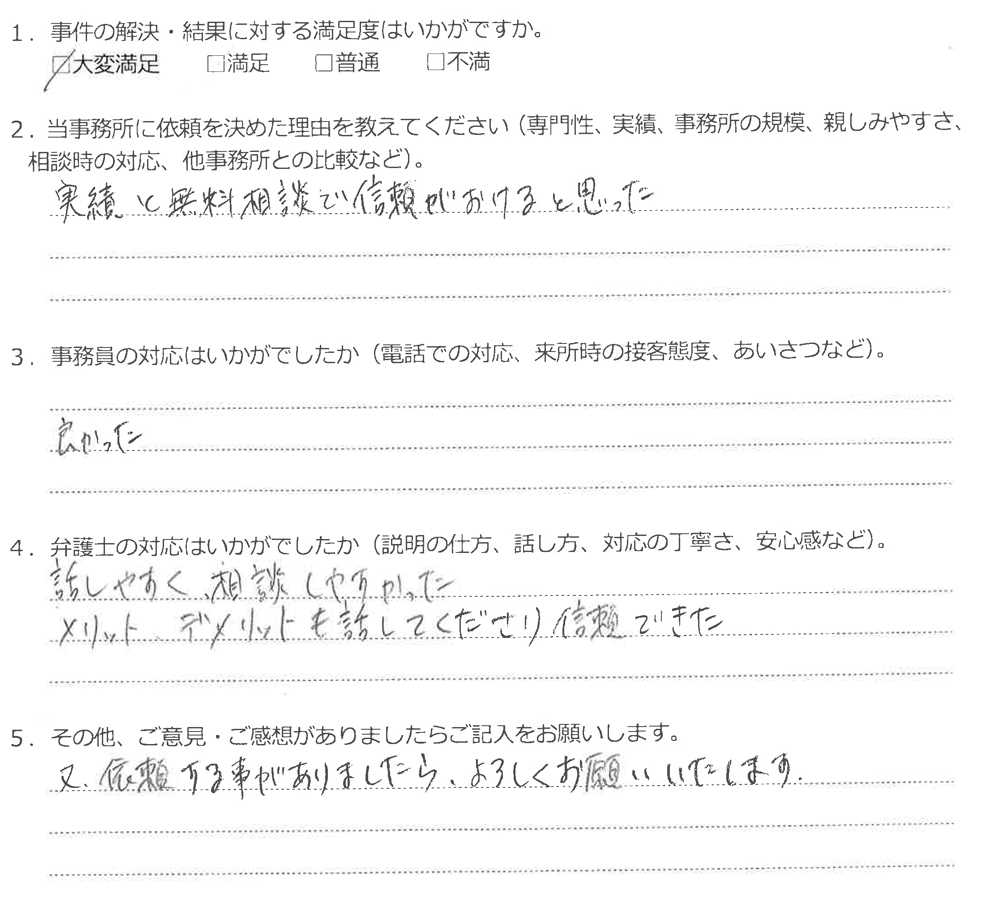 1. 事件の解決・結果に対する満足度はいかがですか。
☑大変満足 □満足 □普通 □不満
2. 当事務所に依頼を決めた理由を教えてください（専門性、実績、事務所の規模、親しみやすさ、
相談時の対応、他事務所との比較など）。
実績と無料相談で信頼がおけると思った
3. 事務員の対応はいかがでしたか（電話での対応、来所時の接客態度、あいさつなど）。
良かった
4. 弁護士の対応はいかがでしたか（説明の仕方、話し方、対応の丁寧さ、安心感など）。
話しやすく、相談しやすかった
メリット、デメリットも話してくださり信頼できた
5. その他、ご意見・ご感想がありましたらご記入をお願いします。
又、依頼する事がありましたら、よろしくお願いいたします.